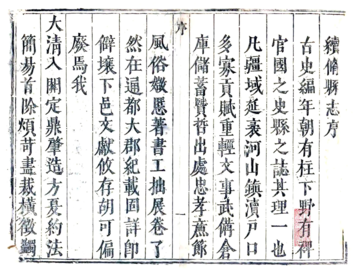 續脩縣志序
古史編年朝有柱下野有稗
官國之史縣之誌其理一也
凡疆域延袤河山鎮瀆戶口
多寡貢賦重輕文事武備倉
庫儲蓄賢哲出處忠孝廉節
序
一
風俗媺惡著書工拙展卷了
然在通都大郡紀載固詳即
僻壤下邑文獻攸存胡可偏
廢焉我
大清入關定鼎肇造方夏約法
簡易首除煩苛盡裁橫徵蠲